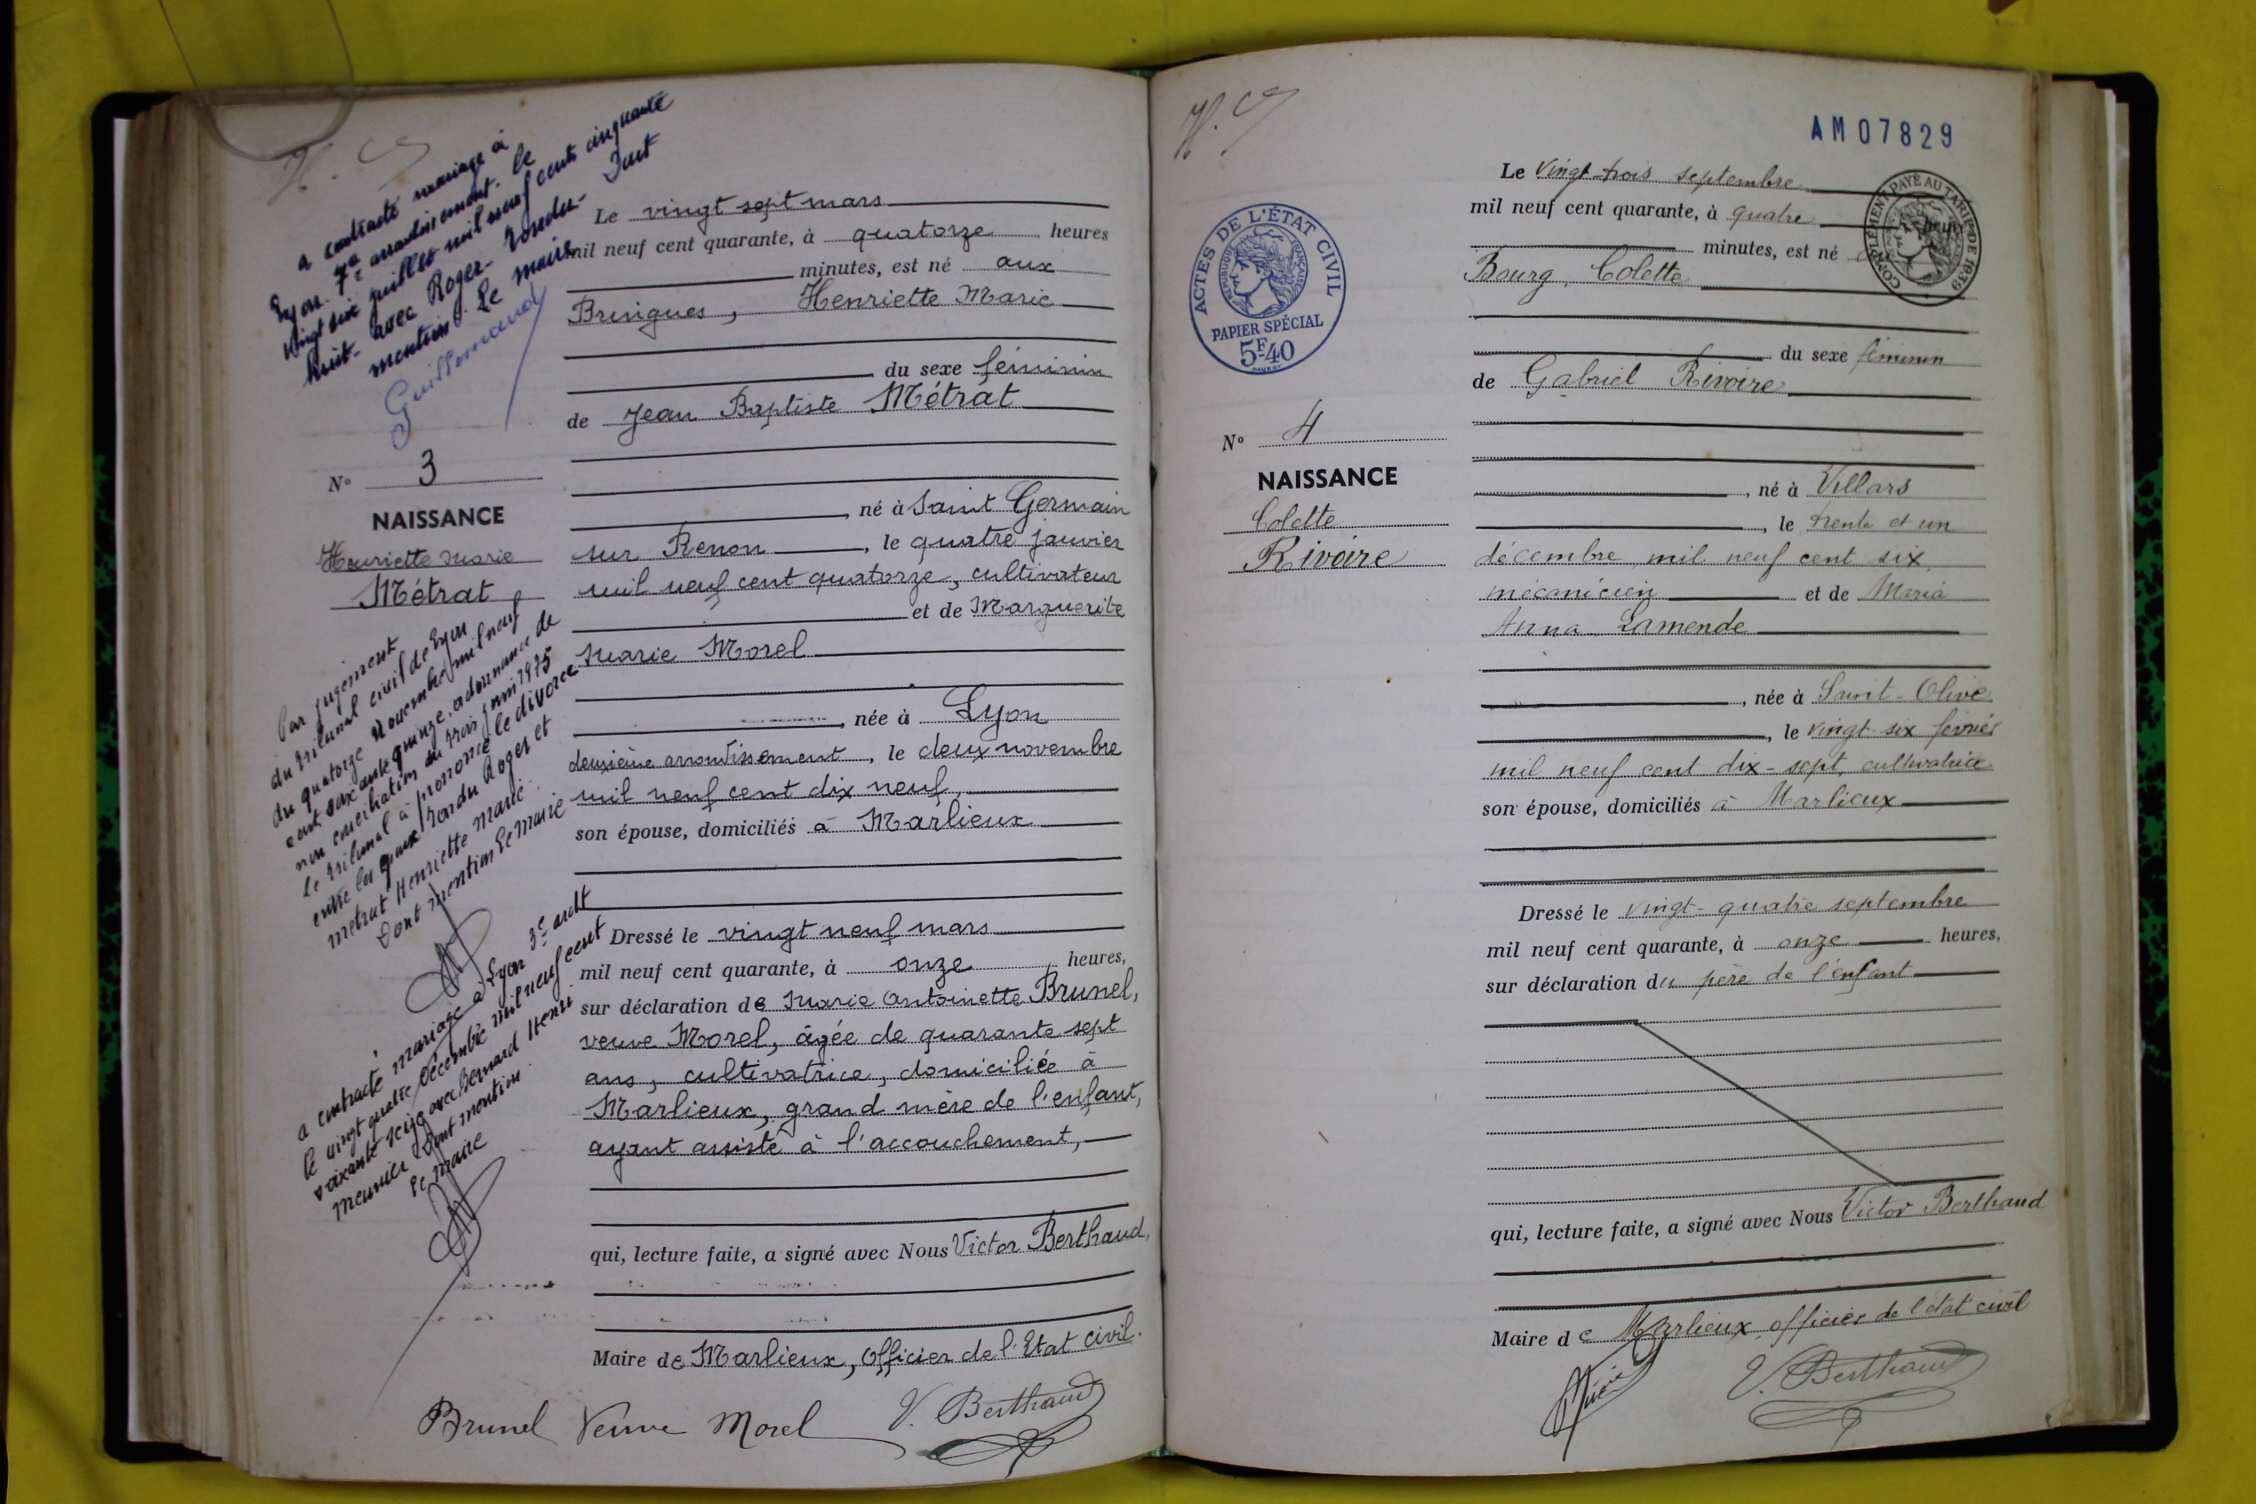 a contracté mariage à
Lyon 7e arrondissement le
vingt six juillet mil neuf cent cinquante
huit avec Roger Rondu - Dont
mention. Le maire
Guillemaud
Le vingt sept mars
mil neuf cent quarante, à quatorze heures
minutes, est né aux
Bringues, Henriette Marie
du sexe féminin
de Jean Baptiste Métrat
N° 3
NAISSANCE
Henriette Marie
Métrat
né à Saint Germain
sur Renon, le quatre janvier
mil neuf cent quatorze, cultivateur
et de Marguerite
Marie Morel
, née à Lyon
deuxième arrondissement, le deux novembre
mil neuf cent dix neuf,
son épouse, domiciliés à Marlieux
Par jugement
du tribunal civil de Lyon
du quatorze Novembre mil neuf
cent soixante quinze, ordonnance de
non conciliation du trois juin 1975
le tribunal a prononcé le divorce
entre les époux Rondu Roger et
Métrat Henriette Marie.
Dont mention Le Maire
Dressé le vingt neuf mars
mil neuf cent quarante, à onze heures,
sur déclaration de Marie Antoinette Brunel,
veuve Morel, âgée de quarante sept
ans, cultivatrice, domiciliée à
Marlieux, grand mère de l'enfant,
ayant assisté à l'accouchement,
a contracté mariage à Lyon 3e ardt
le vingt quatre décembre mil neuf cent
soixante seize avec Bernard Henri
Meunier Dont mention
Le maire
qui, lecture faite, a signé avec Nous Victor Berthaud,
Maire de Marlieux, officier de l'Etat civil.
Brunel Veuve Morel V. Berthaud
AM07829
ACTES DE L'ÉTAT CIVIL
RÉPUBLIQUE FRANÇAISE
PAPIER SPÉCIAL
5F40
COMPLÉMENT PAYÉ AU TARIF DE 1939
Le vingt-trois septembre
mil neuf cent quarante, à quatre
minutes, est né
Bourg, Colette
du sexe féminin
de Gabriel Rivoire
N° 4
NAISSANCE
Colette
Rivoire
, né à Villars
, le trente et un
décembre mil neuf cent six,
mécanicien et de Maria
Anna Lamende
, née à Saint-Olive
, le vingt-six février
mil neuf cent dix-sept, cultivatrice
son épouse, domiciliés à Marlieux
Dressé le vingt-quatre septembre
mil neuf cent quarante, à onze heures,
sur déclaration du père de l'enfant
qui, lecture faite, a signé avec Nous Victor Berthaud
Maire de Marlieux, officier de l'état civil
V. Berthaud